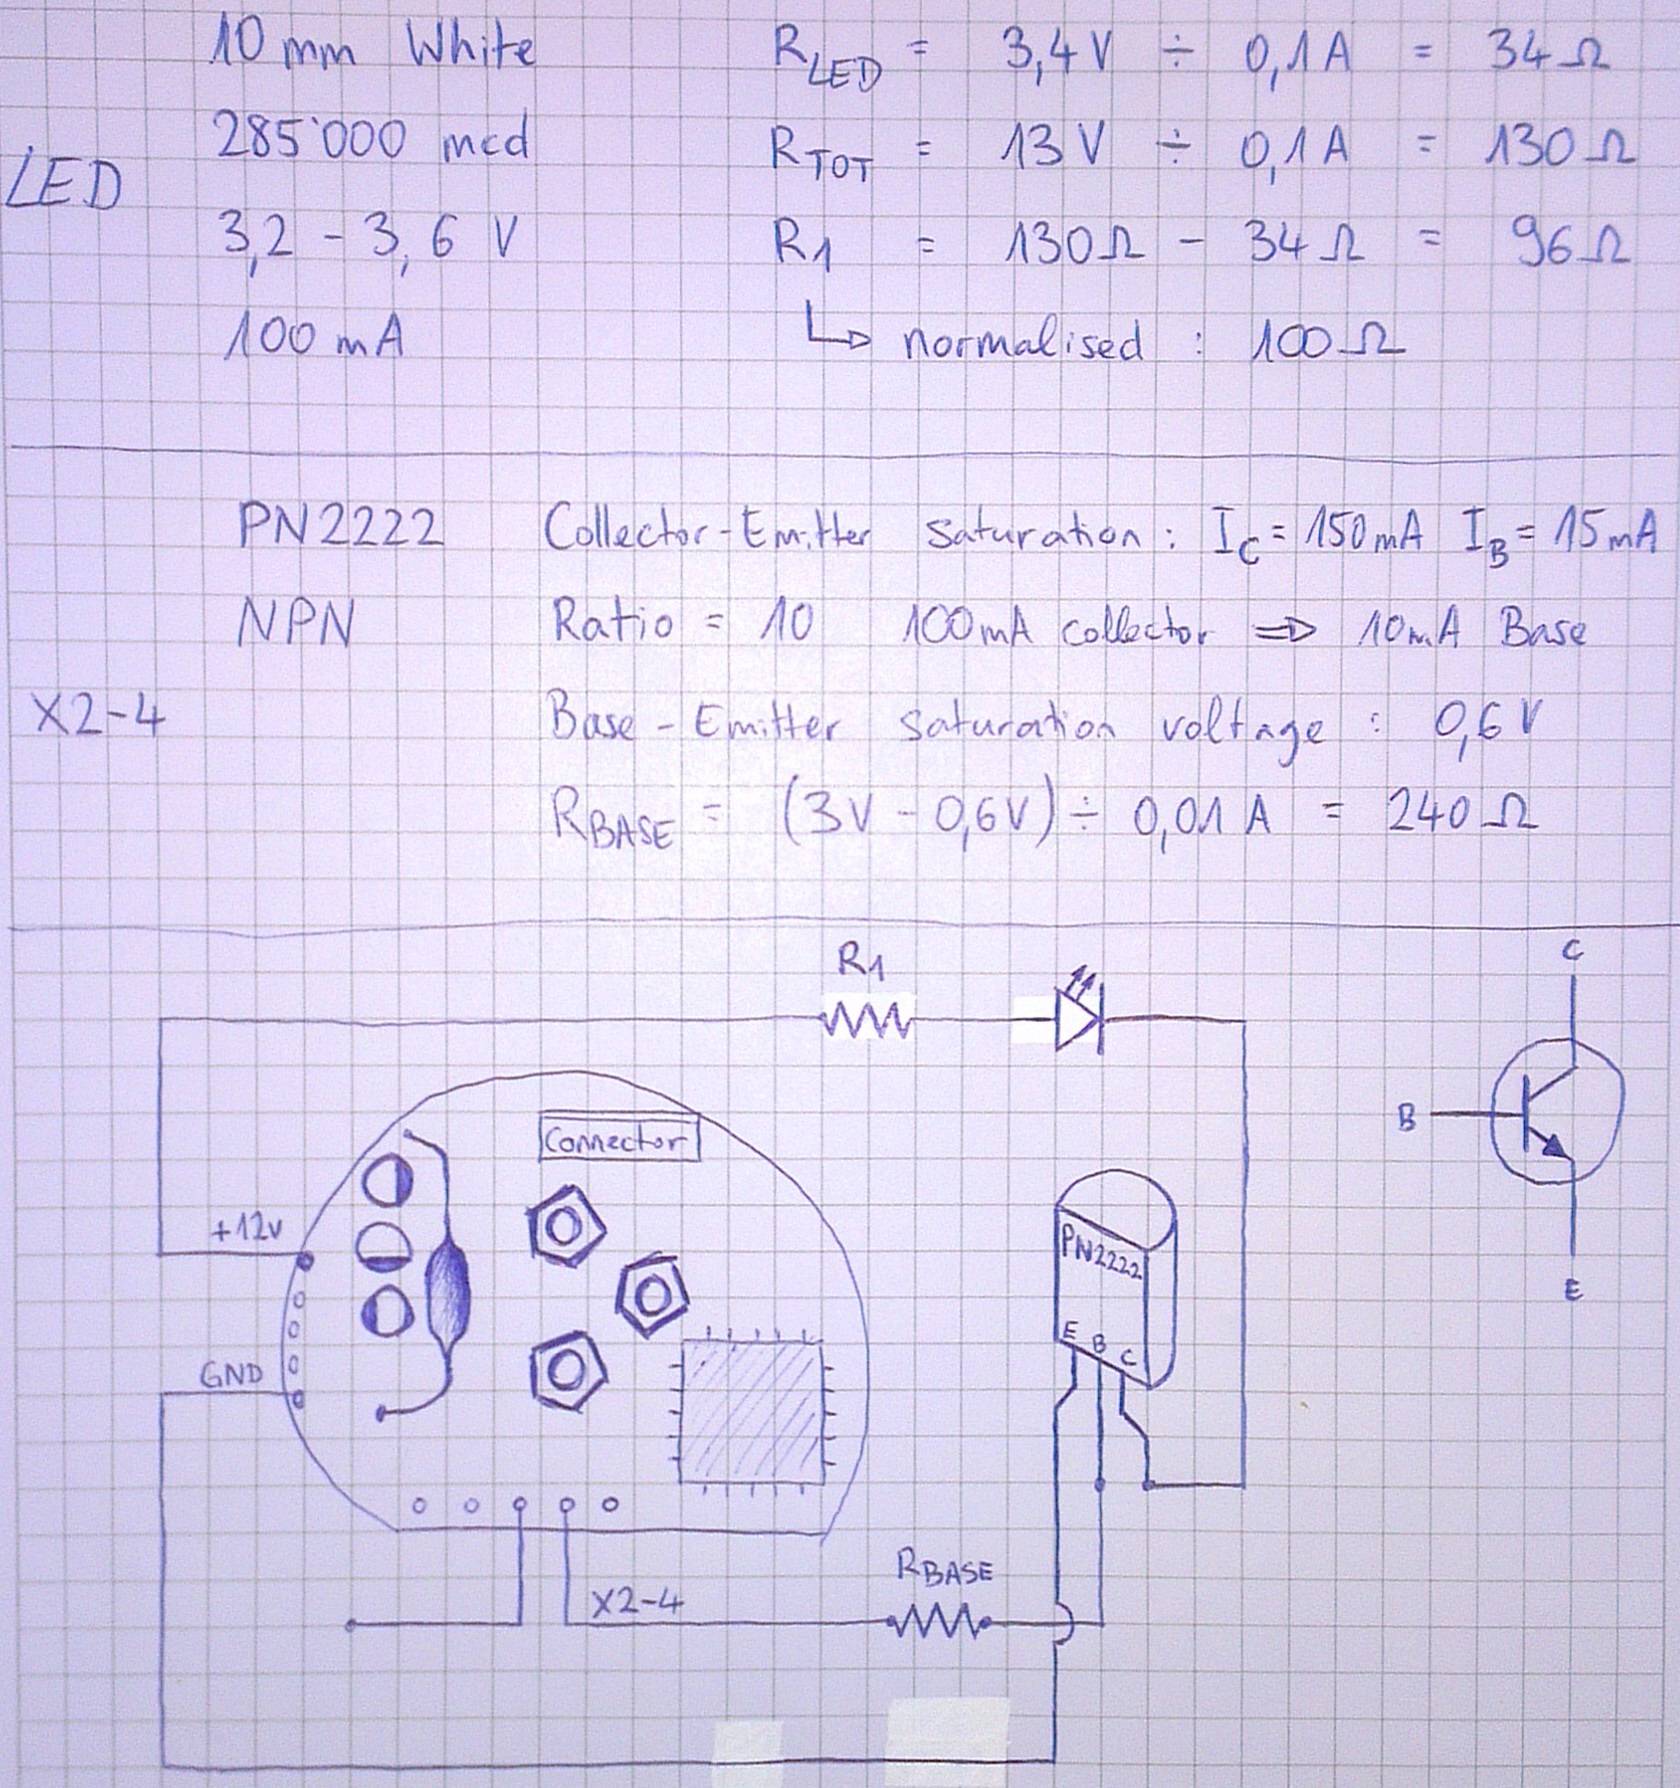 10 mm White
285'000 mcd
LED
3,2 - 3,6 V
100 mA
R LED = 3,4 V ÷ 0,1 A = 34 Ω
R TOT = 13 V ÷ 0,1 A = 130 Ω
R1 = 130 Ω - 34 Ω = 96 Ω
↳ normalised : 100 Ω
PN2222 Collector-Emitter saturation : IC = 150 mA IB = 15 mA
NPN Ratio = 10 100 mA collector => 10 mA Base
X2-4 Base - Emitter saturation voltage : 0,6 V
R BASE = (3V - 0,6V) ÷ 0,01 A = 240 Ω
R1
C
Connector
B
+12v
PN2222
E
E B C
GND
R BASE
X2-4